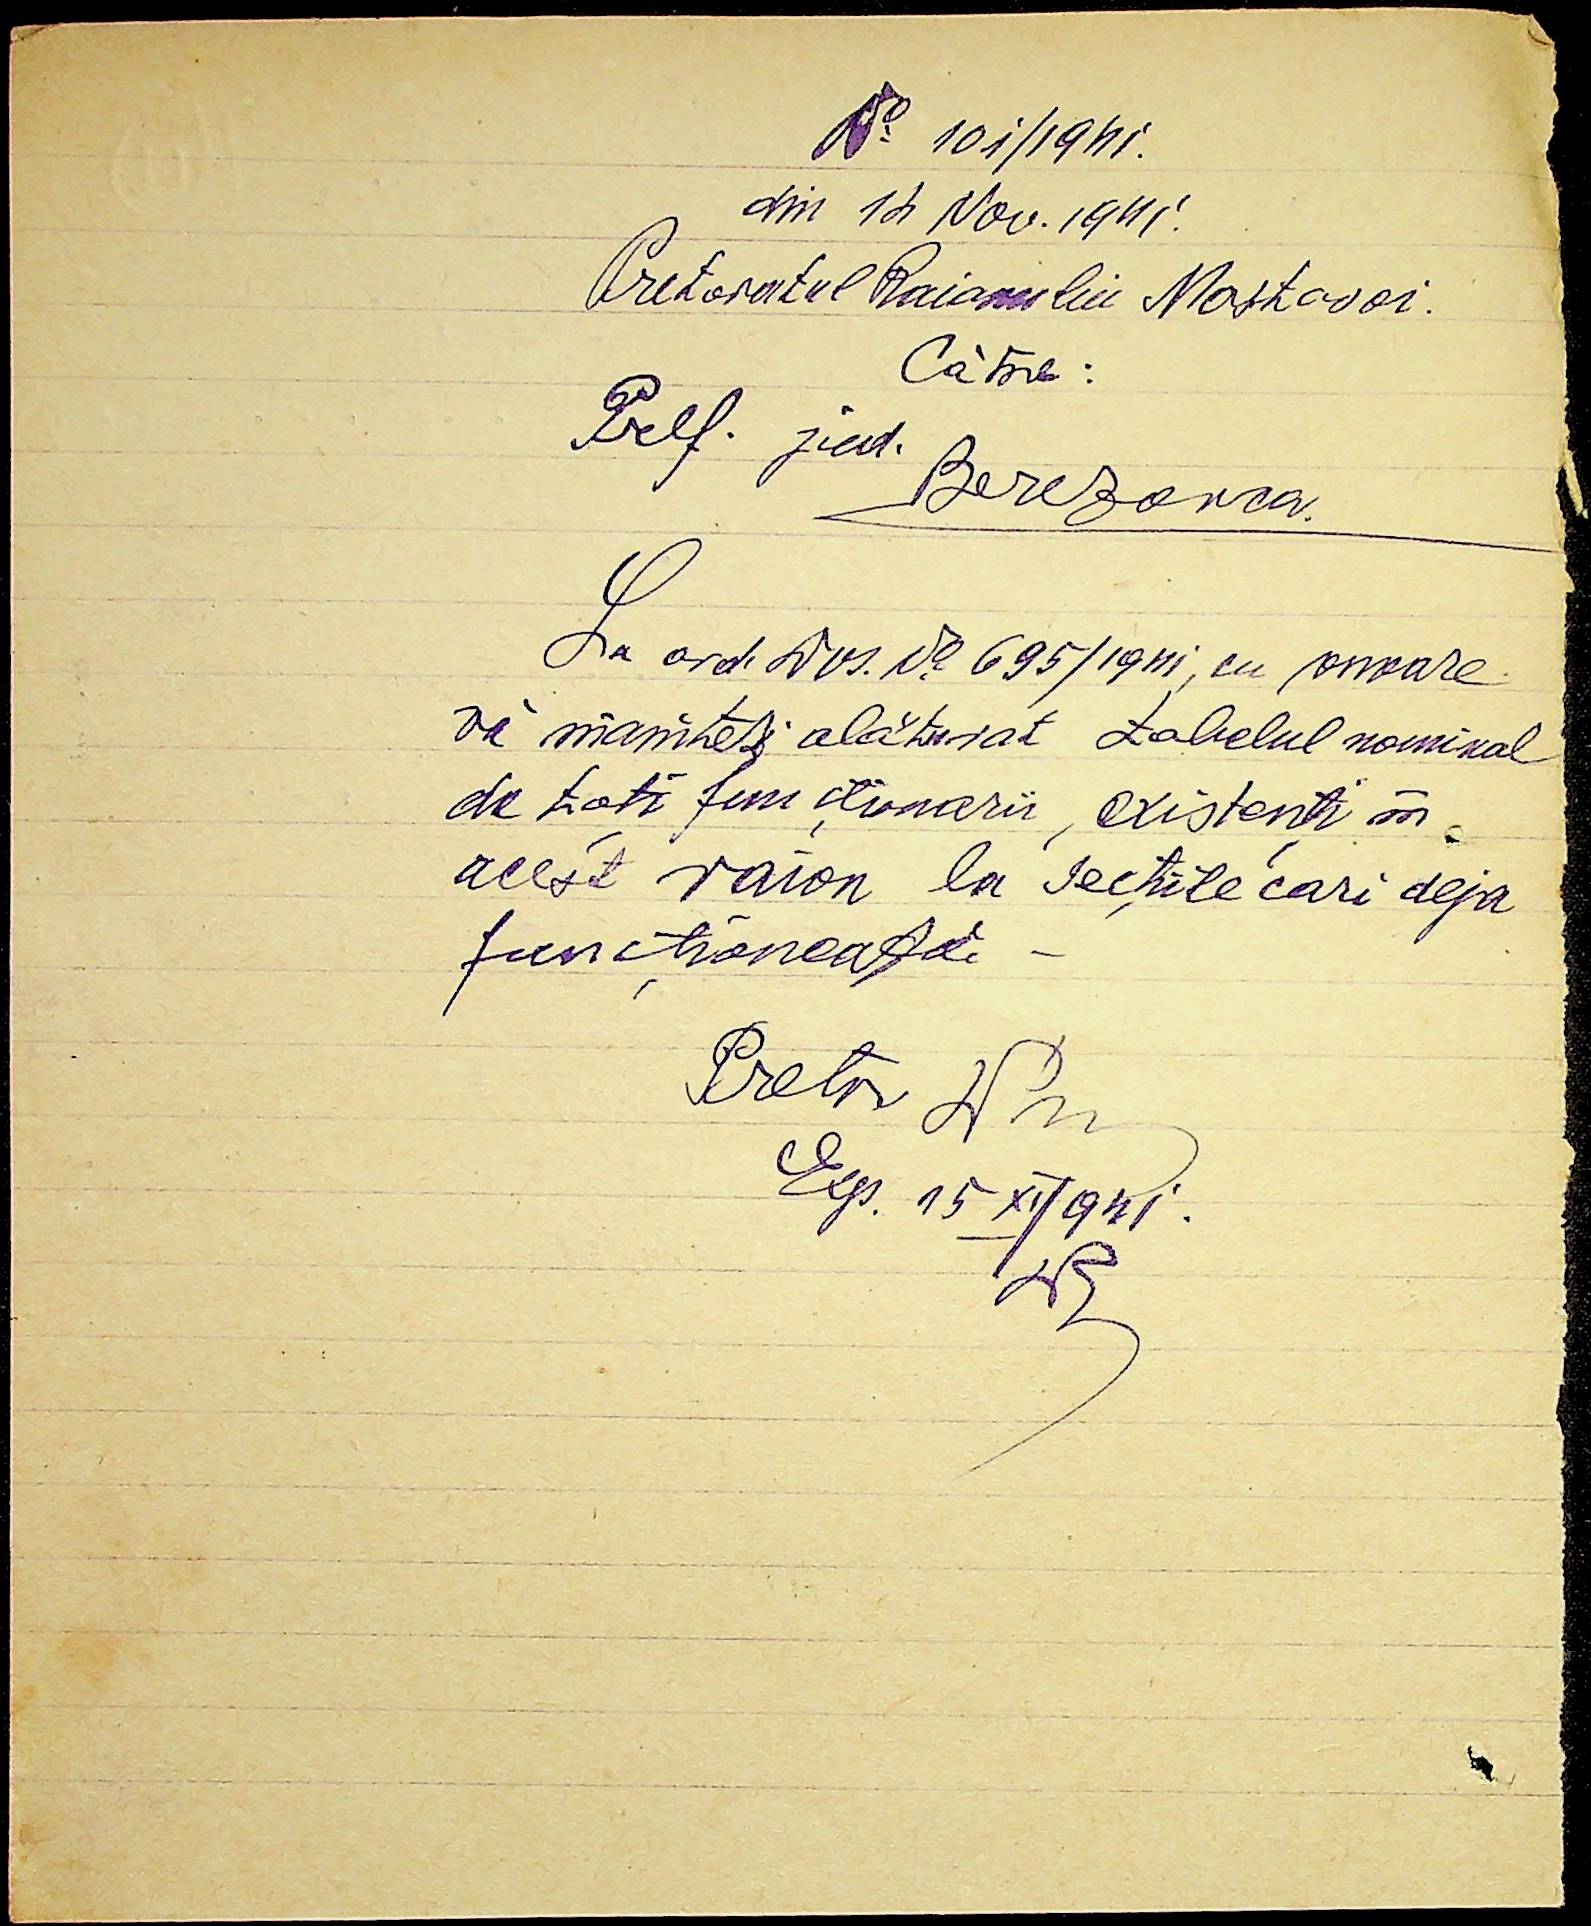 No 101/1941.
din 12 Nov. 1941.
Pretoratul Raionului Mostovoi.
Către:
Pref. jud.
Berezovca.
La ord. Dvs. No 695/1941, cu onoare
vă înaintez alăturat tabelul nominal
de toți funcționarii, existenți în
acest raion la secțiile cari deja
funcționează –
Pretor
Exp. 15 XI/941.